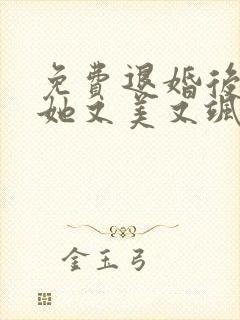 免费退婚后
她又美又飒
金玉弓